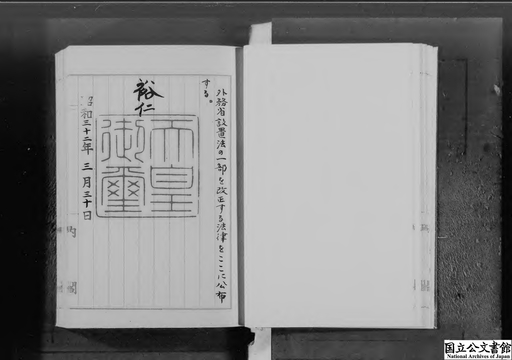 外務省設置法の一部を改正する法律をここに公布
する。
裕仁
天皇
御璽
昭和三十二年三月三十日
内閣
国立公文書館
National Archives of Japan